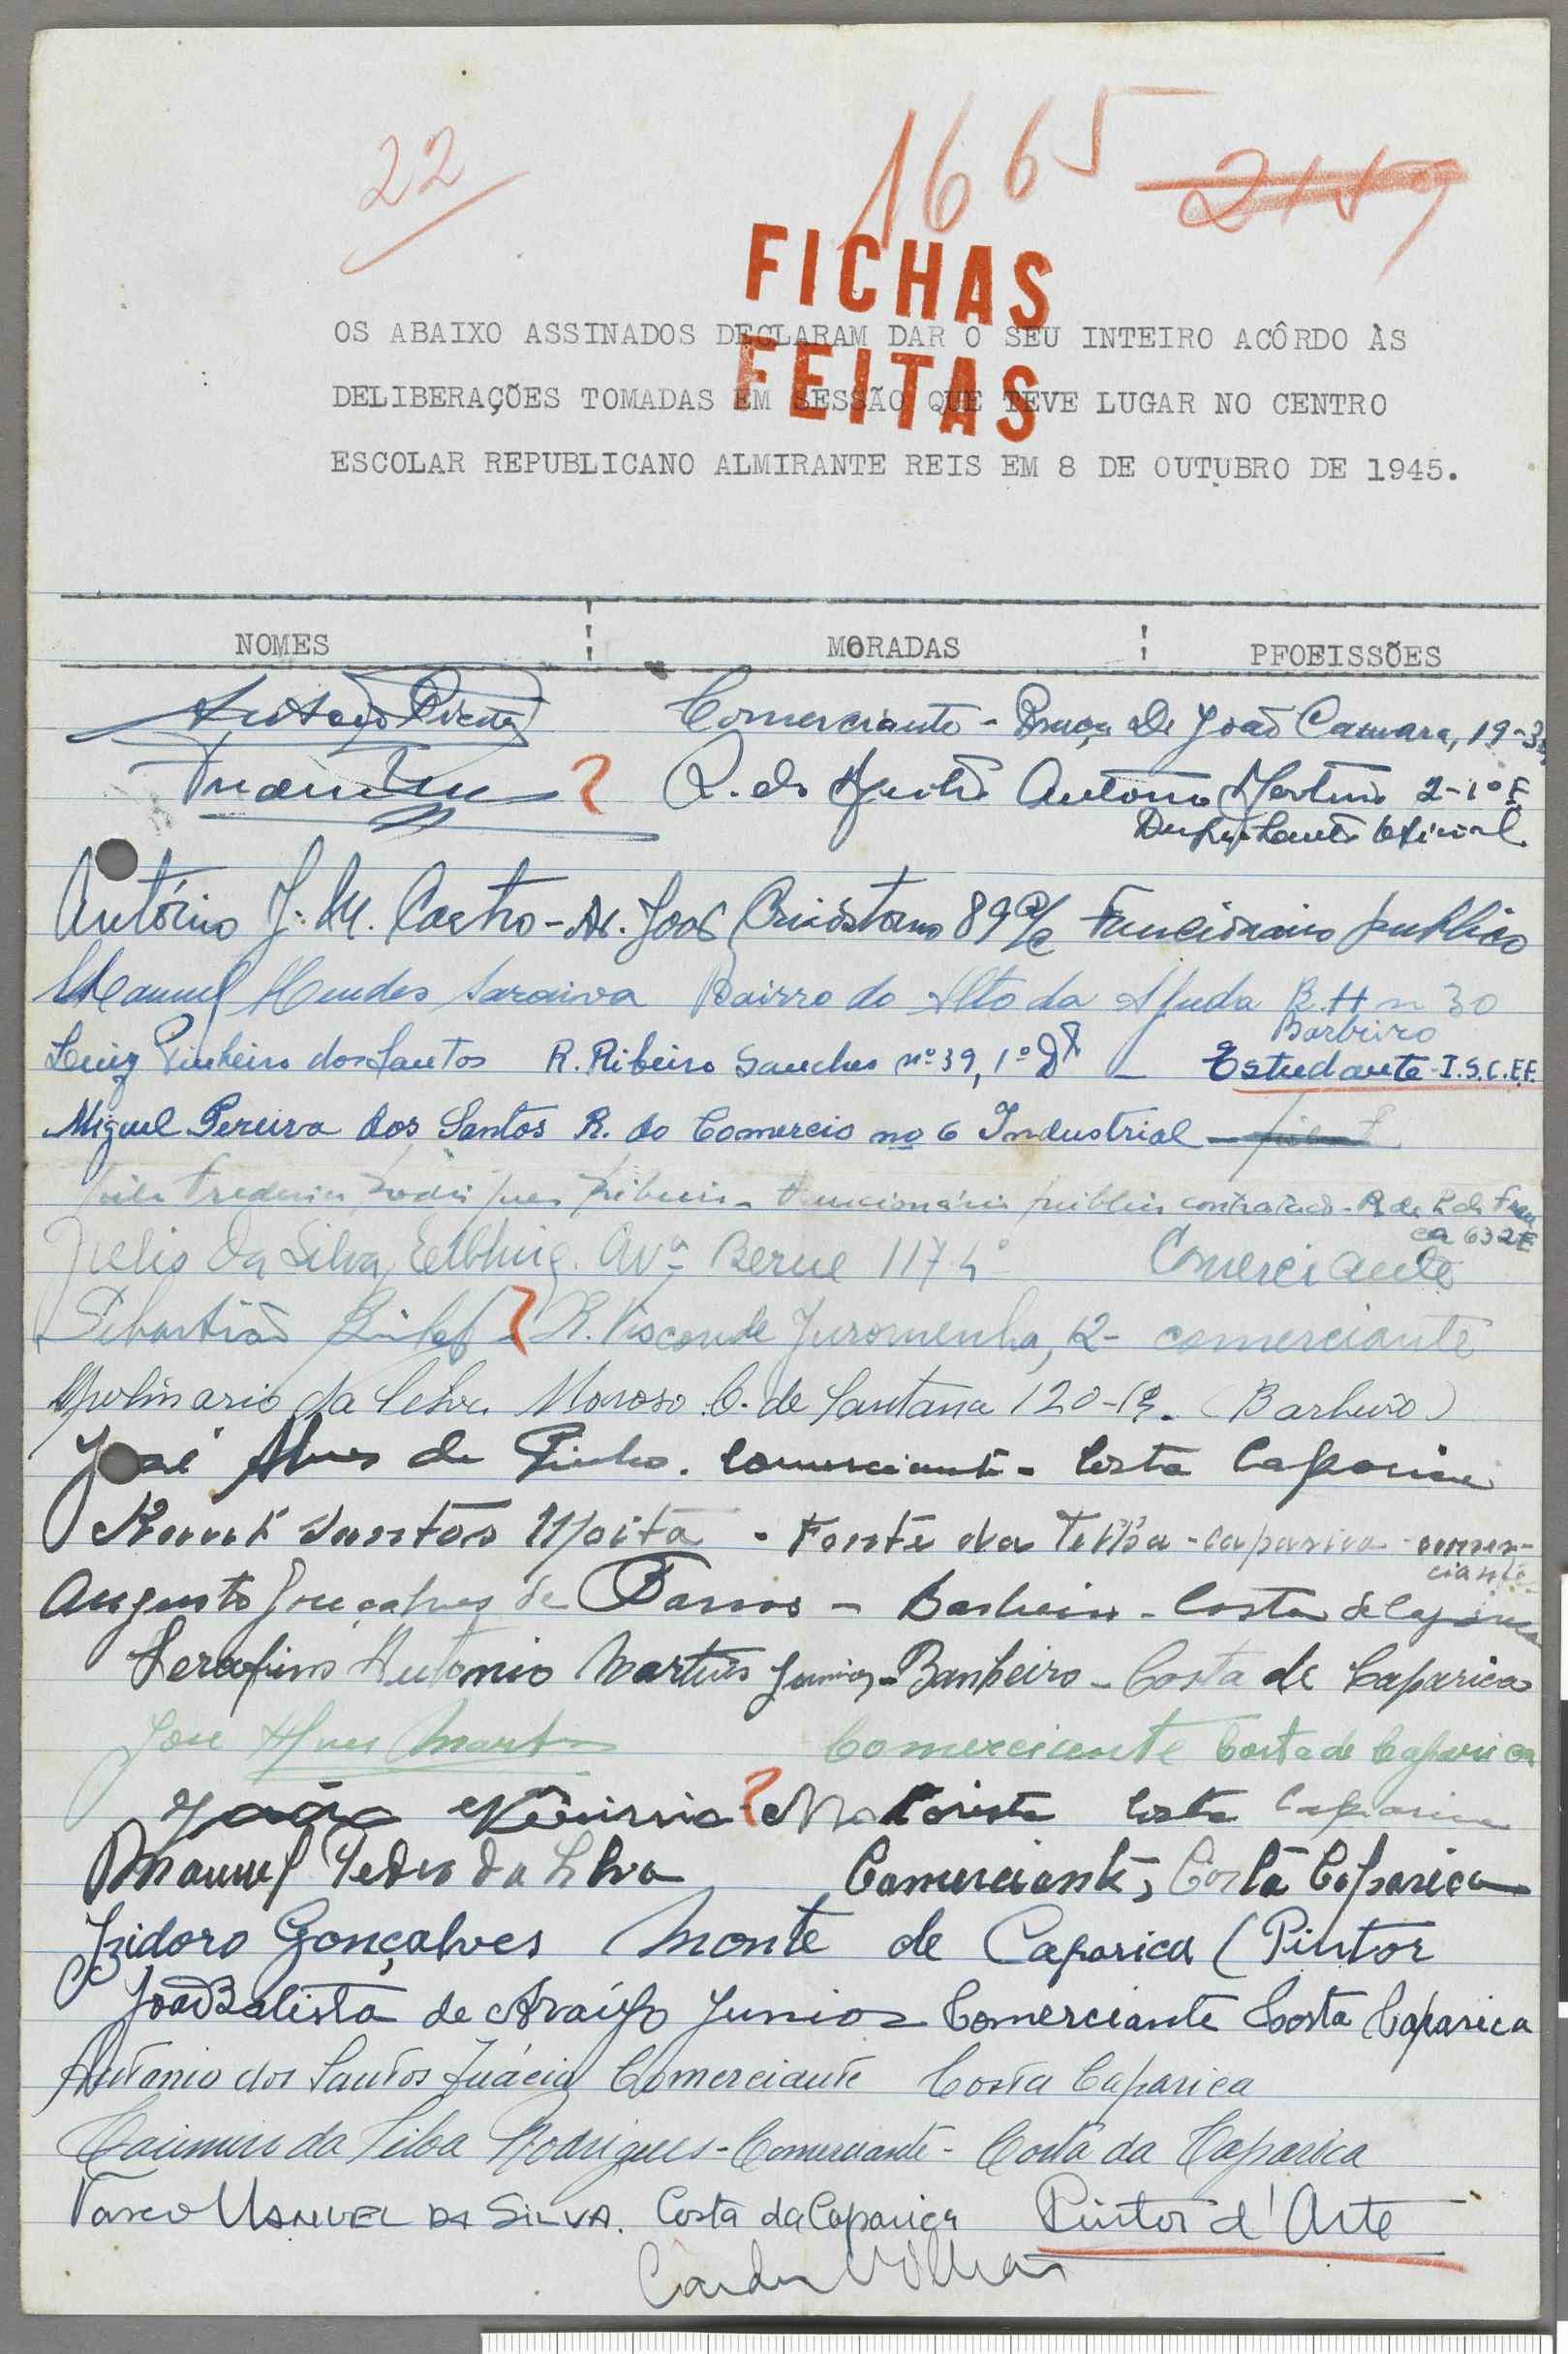 22
1665
FICHAS
OS ABAIXO ASSINADOS DECLARAM DAR O SEU INTEIRO ACÔRDO ÀS
FEITAS
DELIBERAÇÕES TOMADAS EM SESSÃO QUE TEVE LUGAR NO CENTRO
ESCOLAR REPUBLICANO ALMIRANTE REIS EM 8 DE OUTUBRO DE 1945.
NOMES MORADAS PFOFISSÕES
Comerciante - João Camara, 19-3
? R. do António Martins 2-1º E
António J. M. Castro - José 89 Funcionario publico
Manuel Mendes Saraiva Bairro do Alto da Ajuda R. H n 30
Barbeiro
Luiz Pinheiro dos Santos R. Ribeiro Sanches nº 39, 1º D - Estudante - I.S.C.E.F.
Miguel Pereira dos Santos R. do Comercio no 6 Industrial
Frederico Rodrigues Ribeiro - Funcionário publico contratado - R. da
ca 632 E
Julio da Silva Avª Berne 117 4º Comerciante
Sebastião ? R. Visconde Juromenha, 12 - comerciante
Apolinario da Silva C. de Santana 120-1º. (Barbeiro)
José Alves de Pinho. Comerciante - Costa Caparica
Santos Moita - Fonte da Telha - Caparica - comer-
ciante
Augusto Gonçalves de Barros - Costa de Caparica
Serafim Antonio Martins Junior - Banheiro - Costa de Caparica
José Alves Martins Comerciante Costa de Caparica
João ? Motorista Costa Caparica
Manuel Pedro da Silva Comerciante, Costa Caparica
Izidoro Gonçalves Monte de Caparica (Pintor
João Batista de Araújo Junior Comerciante Costa Caparica
Antonio dos Santos Inácio Comerciante Costa Caparica
Casimiro da Silva Rodrigues - Comerciante - Costa da Caparica
Vasco MANUEL DA SILVA. Costa da Caparica Pintor d'Arte